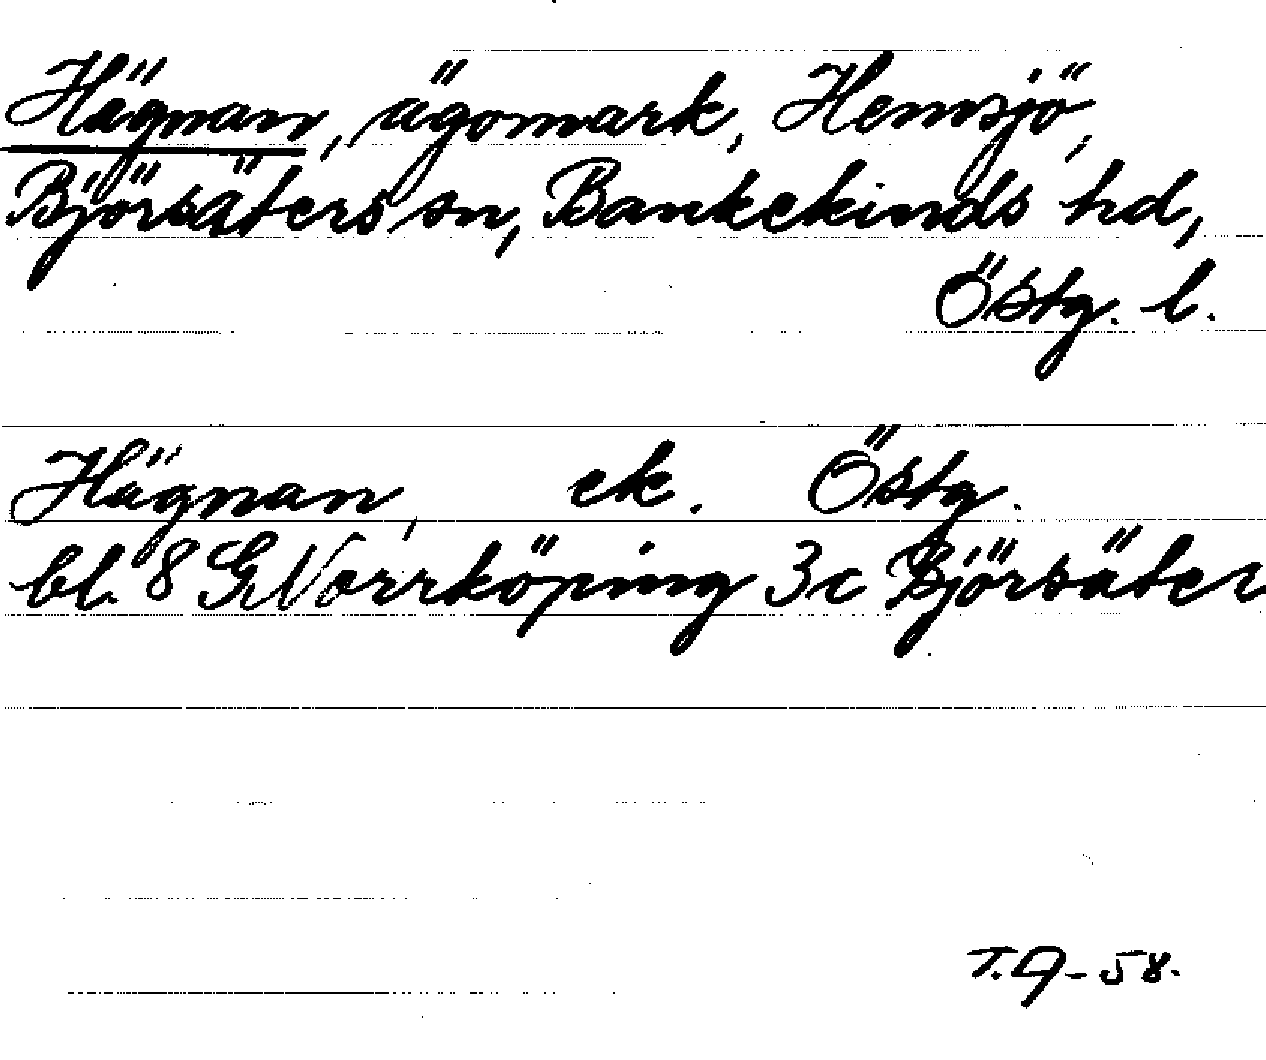 Hägnan, ägomark, Hemsjö,
Björsäters sn, Bankekinds hd,
Östg. l.
Hägnan, ek. Östg.
bl. 8 G Norrköping 3c Björsäter
58.